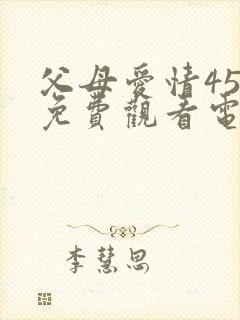 父母愛情45
免費觀看電
李慧思